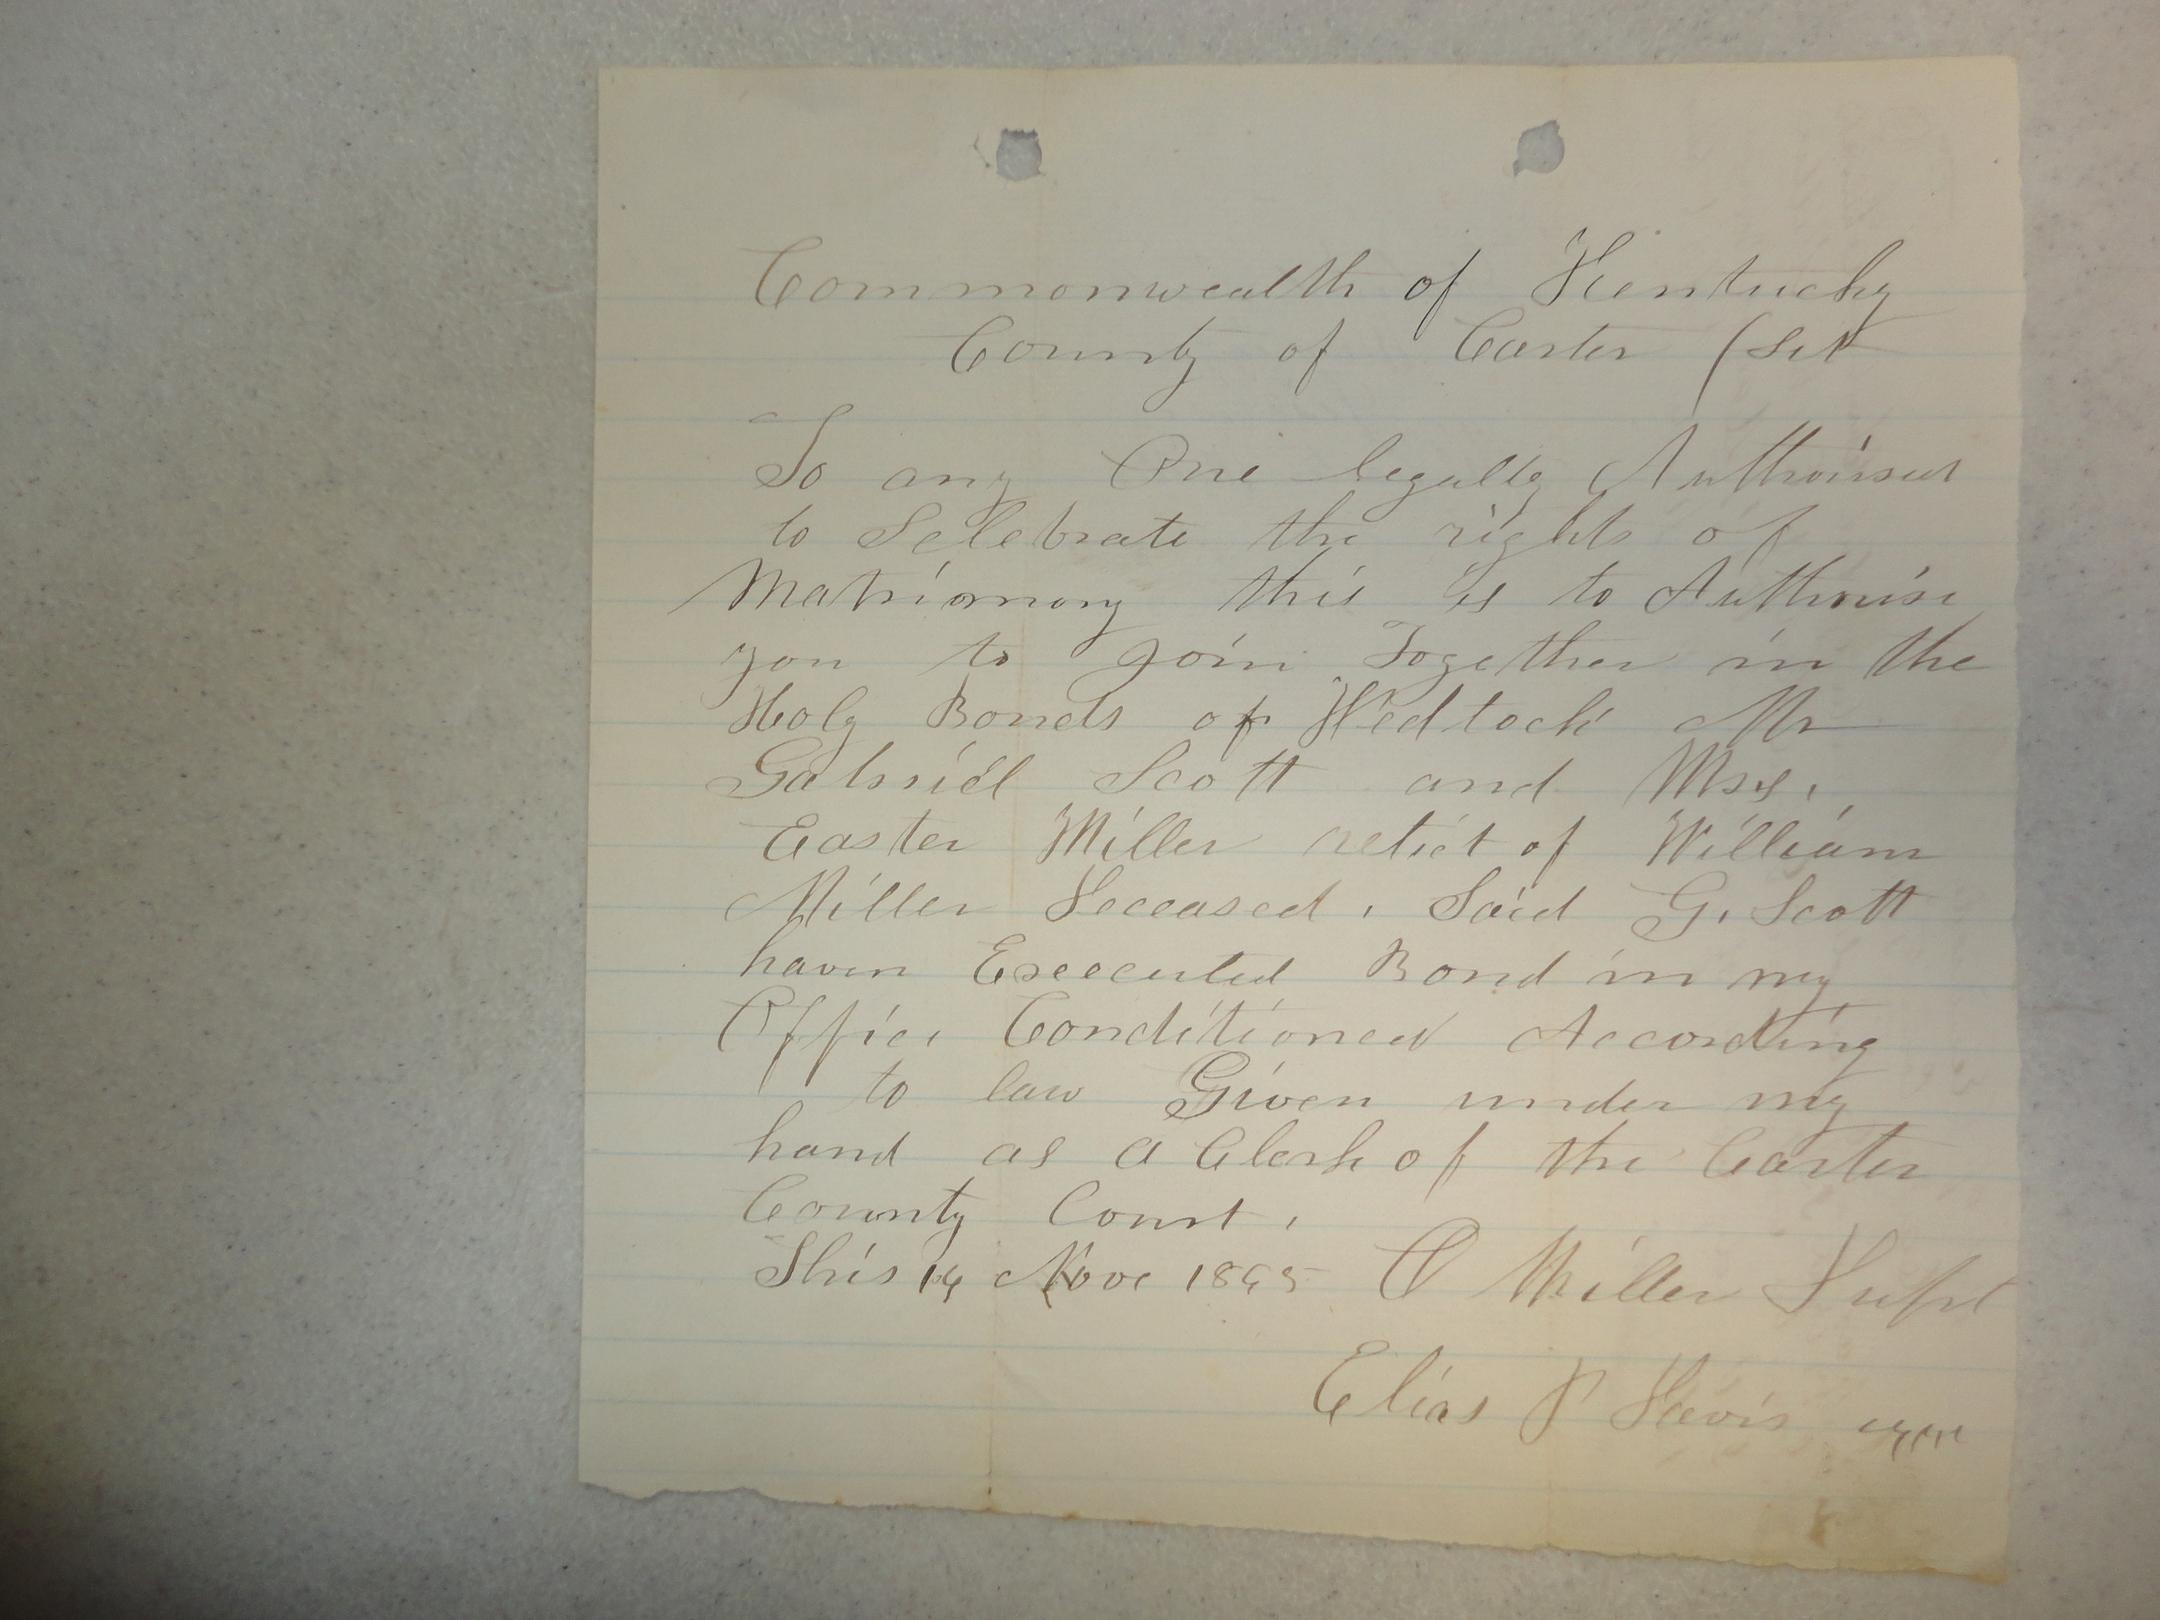 Commonwealth of Kentucky
County of Carter (Sct
To any One legally Authorised
to Selebrate the rights of
Matrimony this is to Authorise
you to Join Together in the
Holy Bonds of Wedlock Mr
Gabriel Scott and Mrs.
Easter Miller relict of William
Miller Deceased. Said G. Scott
haven Executed Bond in my
Office Conditioned According
to law Given under my
hand as a Clerk of the Carter
County Court.
This 14 Nove 1865 O Miller Supt
Elias P Davis